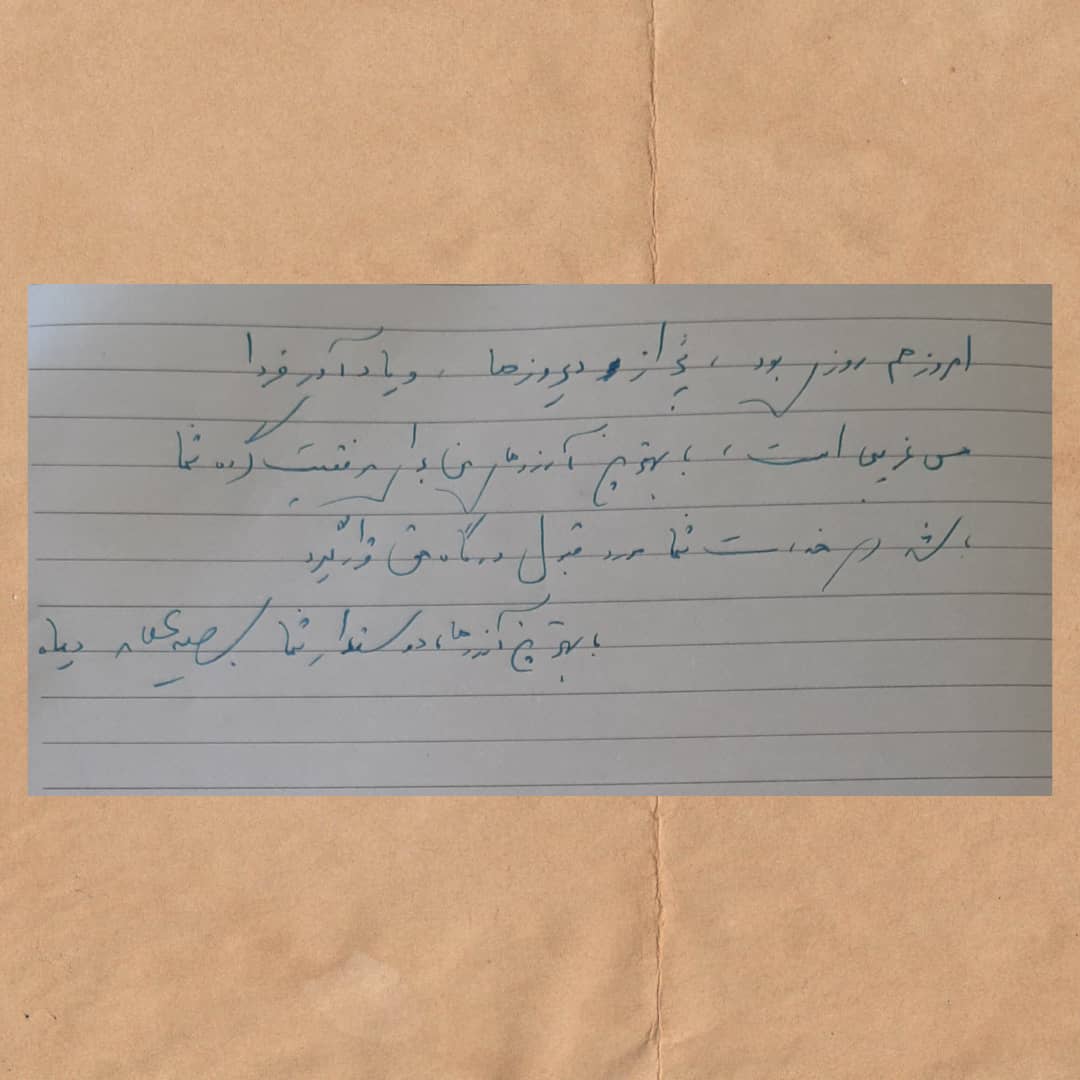 امروز هم روزی بود، یکی از دیروزها، و یادآور فردا
حس غریبی است، با بهترین آرزوهای برای موفقیت گروه شما
باشد که خدمت شما مورد قبول درگاه حق قرار گیرد
با بهترین آرزوها، دوستدار شما